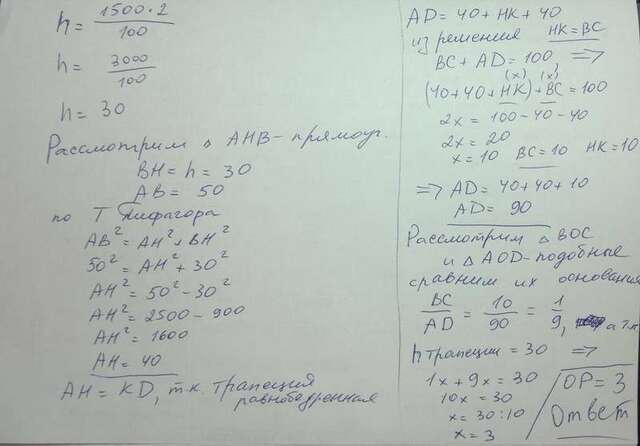 h = 1500·2 / 100
h = 3000 / 100
h = 30
Рассмотрим △ AHB - прямоуг.
BH = h = 30
AB = 50
по Т Пифагора
AB² = AH² + BH²
50² = AH² + 30²
AH² = 50² - 30²
AH² = 2500 - 900
AH² = 1600
AH = 40
AH = KD, т.к. трапеция
равнобедренная
AD = 40 + HK + 40
из решения HK = BC
BC + AD = 100, =>
(x) (x)
(40 + 40 + HK) + BC = 100
2x = 100 - 40 - 40
2x = 20
x = 10 BC = 10 HK = 10
=> AD = 40 + 40 + 10
AD = 90
Рассмотрим △ BOC
и △ AOD - подобные
сравним их основания
BC / AD = 10 / 90 = 1 / 9, а т.к
h трапеции = 30 =>
1x + 9x = 30
10x = 30
x = 30 : 10
x = 3
OP = 3
Ответ